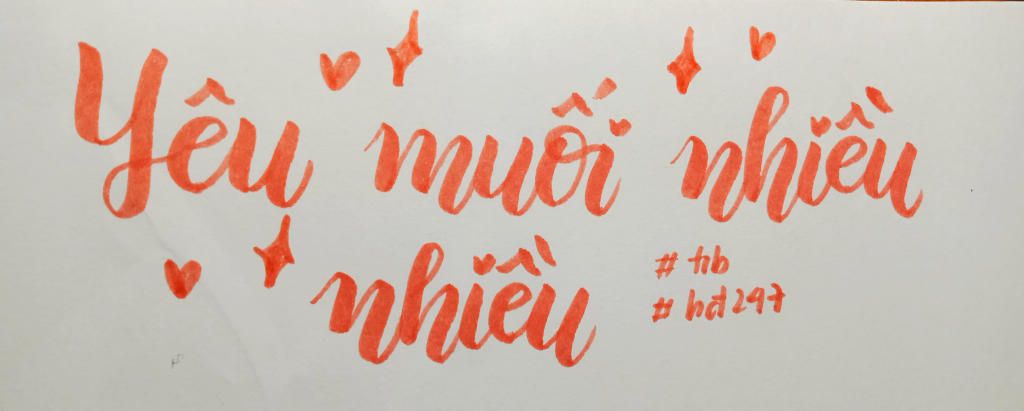 Yêu muối nhiều
nhiều
# hb
# hd247